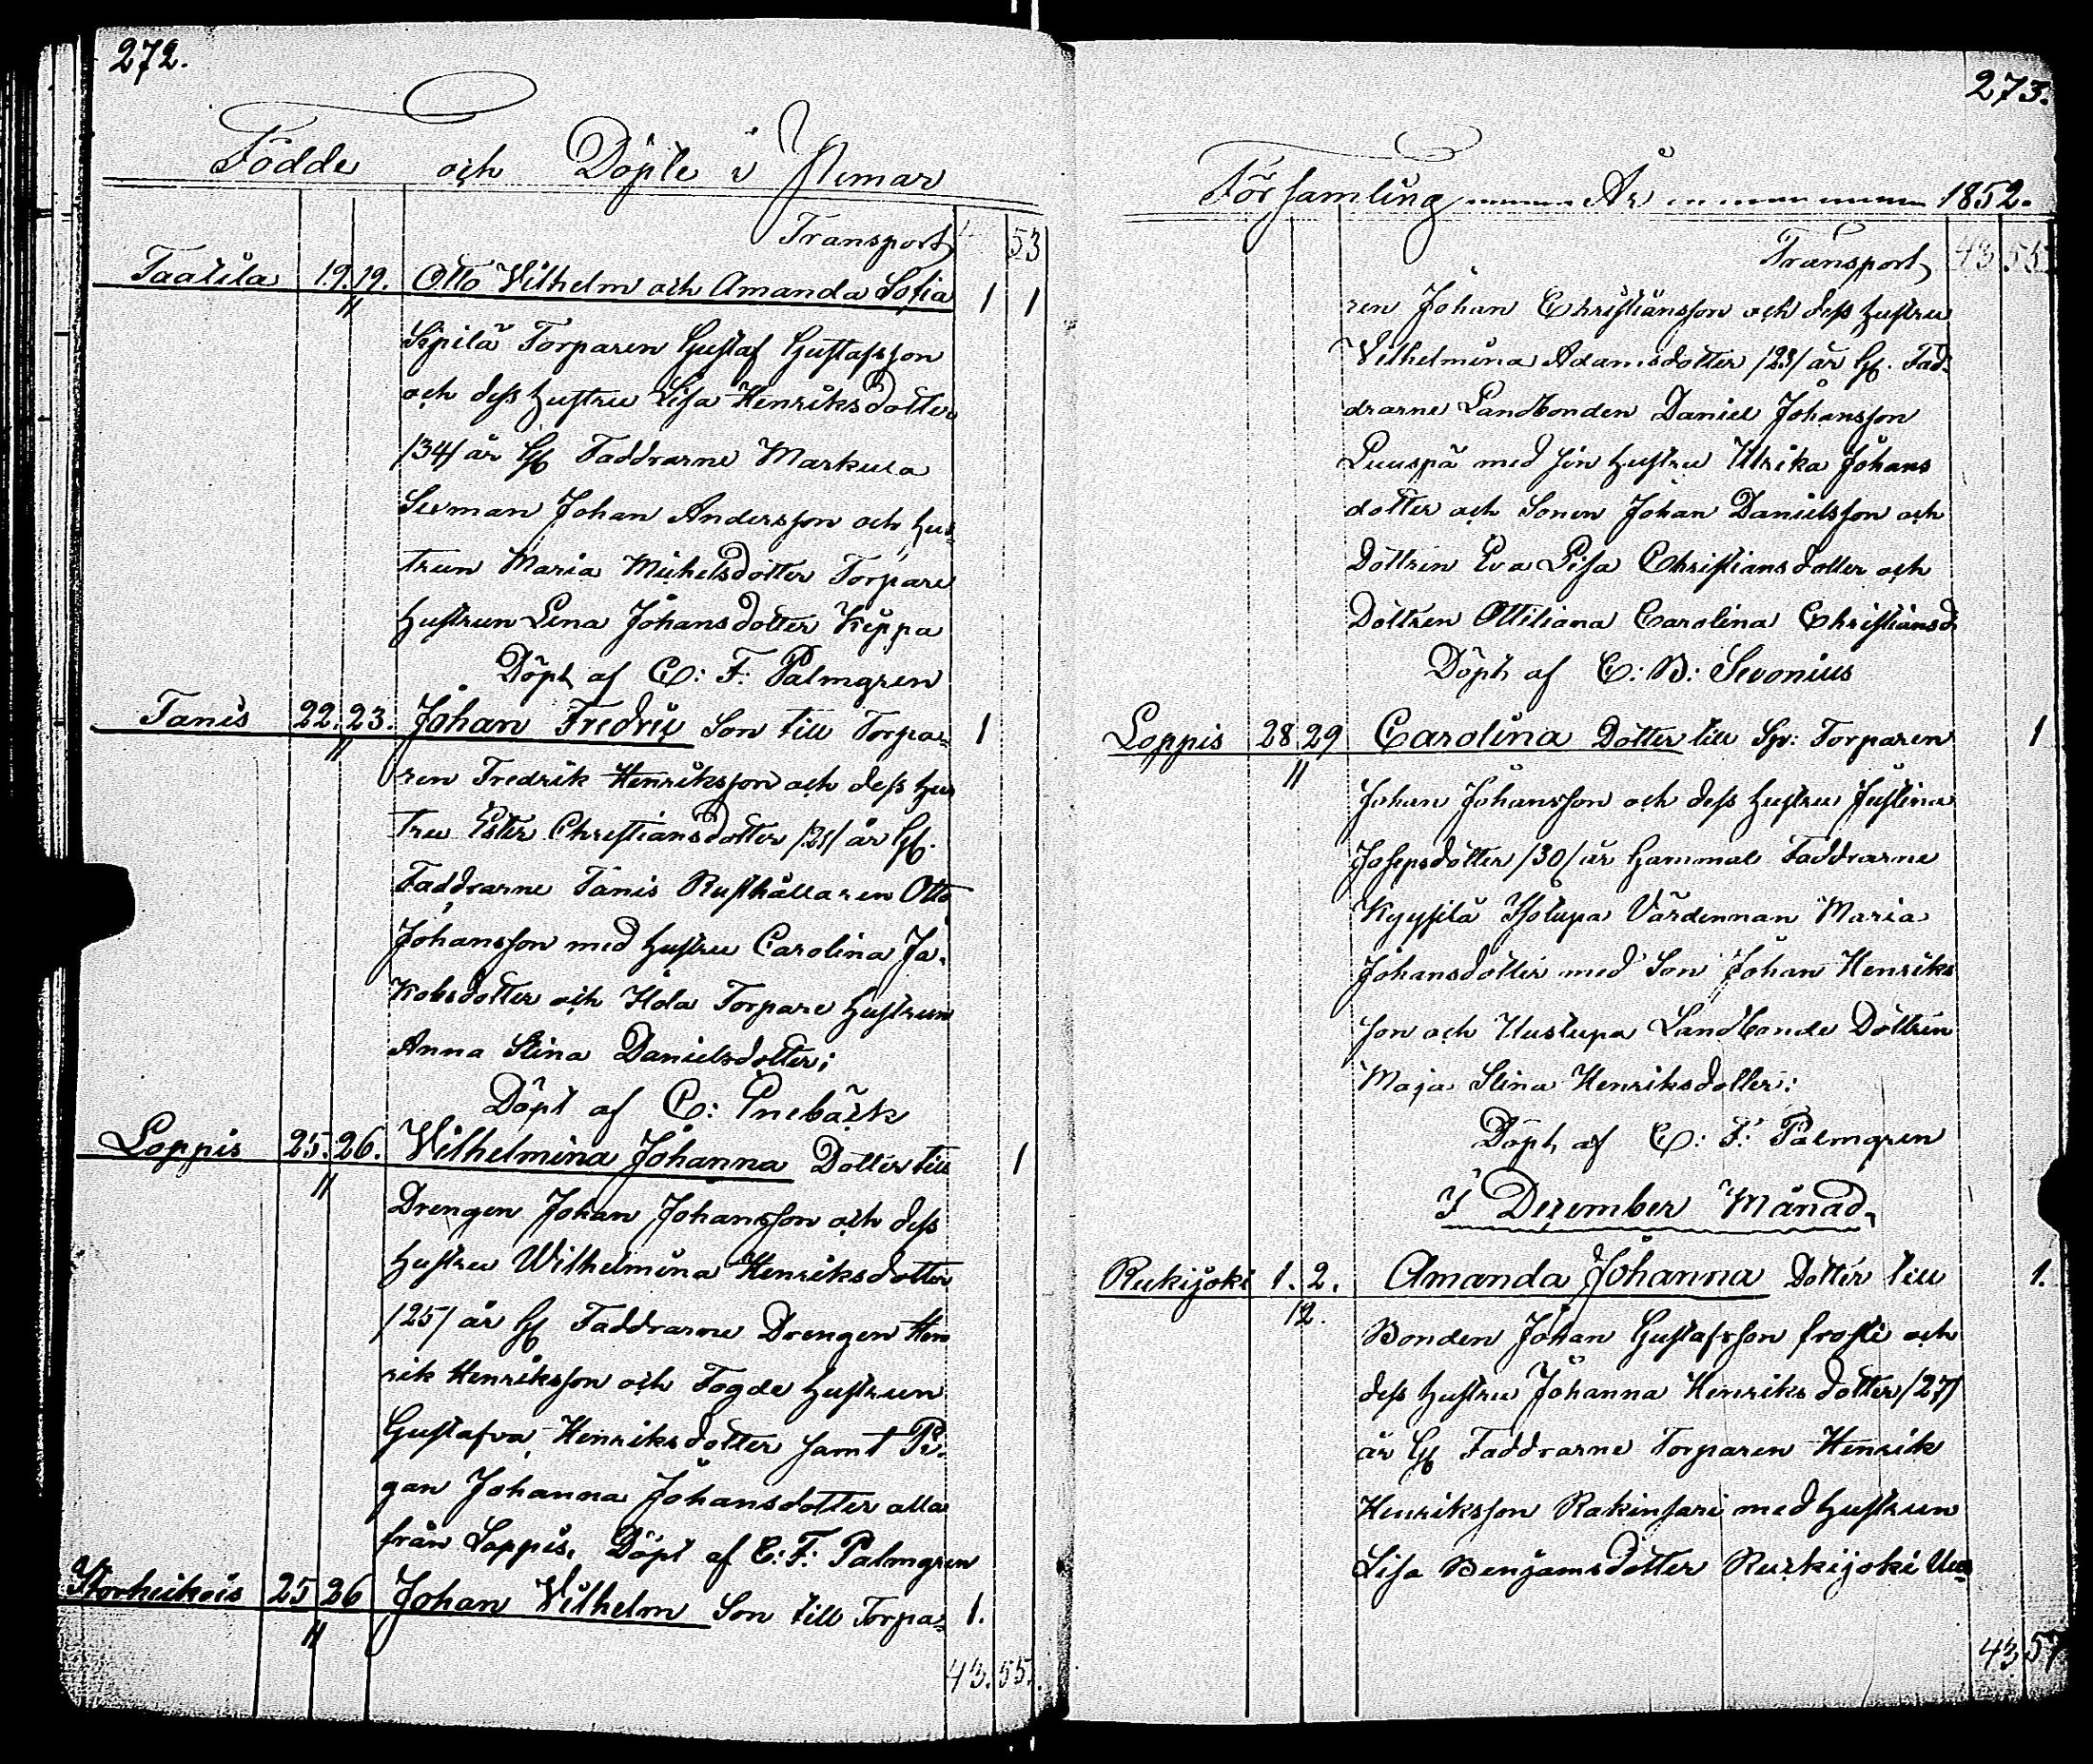 272.
Födde och Döpte i Nemar
Transport 53
Taatila 19. 19. Otto Vilhelm och Amanda Sofia 1 1
11
Sipilä Torparen Gustaf Gustafsson
och dess hustru Lisa Henriksdotter
/34/ år Gl Faddrarne Markula
Sexman Johan Andersson och hus-
trun Maria Michelsdotter Torpare
hustrun Lena Johansdotter Keppa
Döpt af C: F: Palmgren
Tanis 22. 23. Johan Fredric Son till Torpa- 1
11
ren Fredrik Henriksson och dess hus
tru Ester Christiansdotter /21/ år Gl.
Faddrarne Tanis Rusthållaren Otto
Johansson med hustru Carolina Ja-
kobsdotter och Hola Torpare hustrun
Anna Stina Danielsdotter;
Döpt af C: Enebäck
Loppis 25. 26. Vilhelmina Johanna Dotter till 1
11
Drengen Johan Johansson och dess
hustru Wilhelmina Henriksdotter
/25/ år Gl Faddrarne Drengen Hen
rik Henriksson och Fogde hustrun
Gustafva Henriksdotter samt Pi-
gan Johanna Johansdotter alla
från Loppis. Döpt af C: F: Palmgren
Storheikois 25 26 Johan Vilhelm Son till Torpa- 1.
11
43. 55.
273.
Församling År 1852.
Transport 43 55
ren Johan Christiansson och dess hustru
Vilhelmina Adamsdotter /23/ år Gl. Fad-
drarne Landbonden Daniel Johansson
Puuspä med sin hustru Ulrika Johans
dotter och Sonen Johan Danielsson och
Dottren Eva Lisa Christiansdotter och
Dottren Ottiliana Carolina Christiansd
Döpt af C: B: Sevonius
Loppis 28 29 Carolina Dotter till Sp: Torparen 1
11
Johan Johansson och dess hustru Justina
Josepsdotter /30/ år Gammal Faddrarne
Kyysilä Isotupa Värdennan Maria
Johansdotter med Son Johan Henriks
son och Uustupa Landbonde Dottren
Maja Stina Henriksdotter:
Döpt af C: F: Palmgren
I Dezember Månad
Rukijoki 1. 2. Amanda Johanna Dotter till 1.
12.
Bonden Johan Gustafsson frosti och
dess hustru Johanna Henriksdotter /27/
år Gl Faddrarne Torparen Henrik
Henriksson Rakinsari med hustrun
Lisa Benjamsdotter Rukijoki Uus
43 57